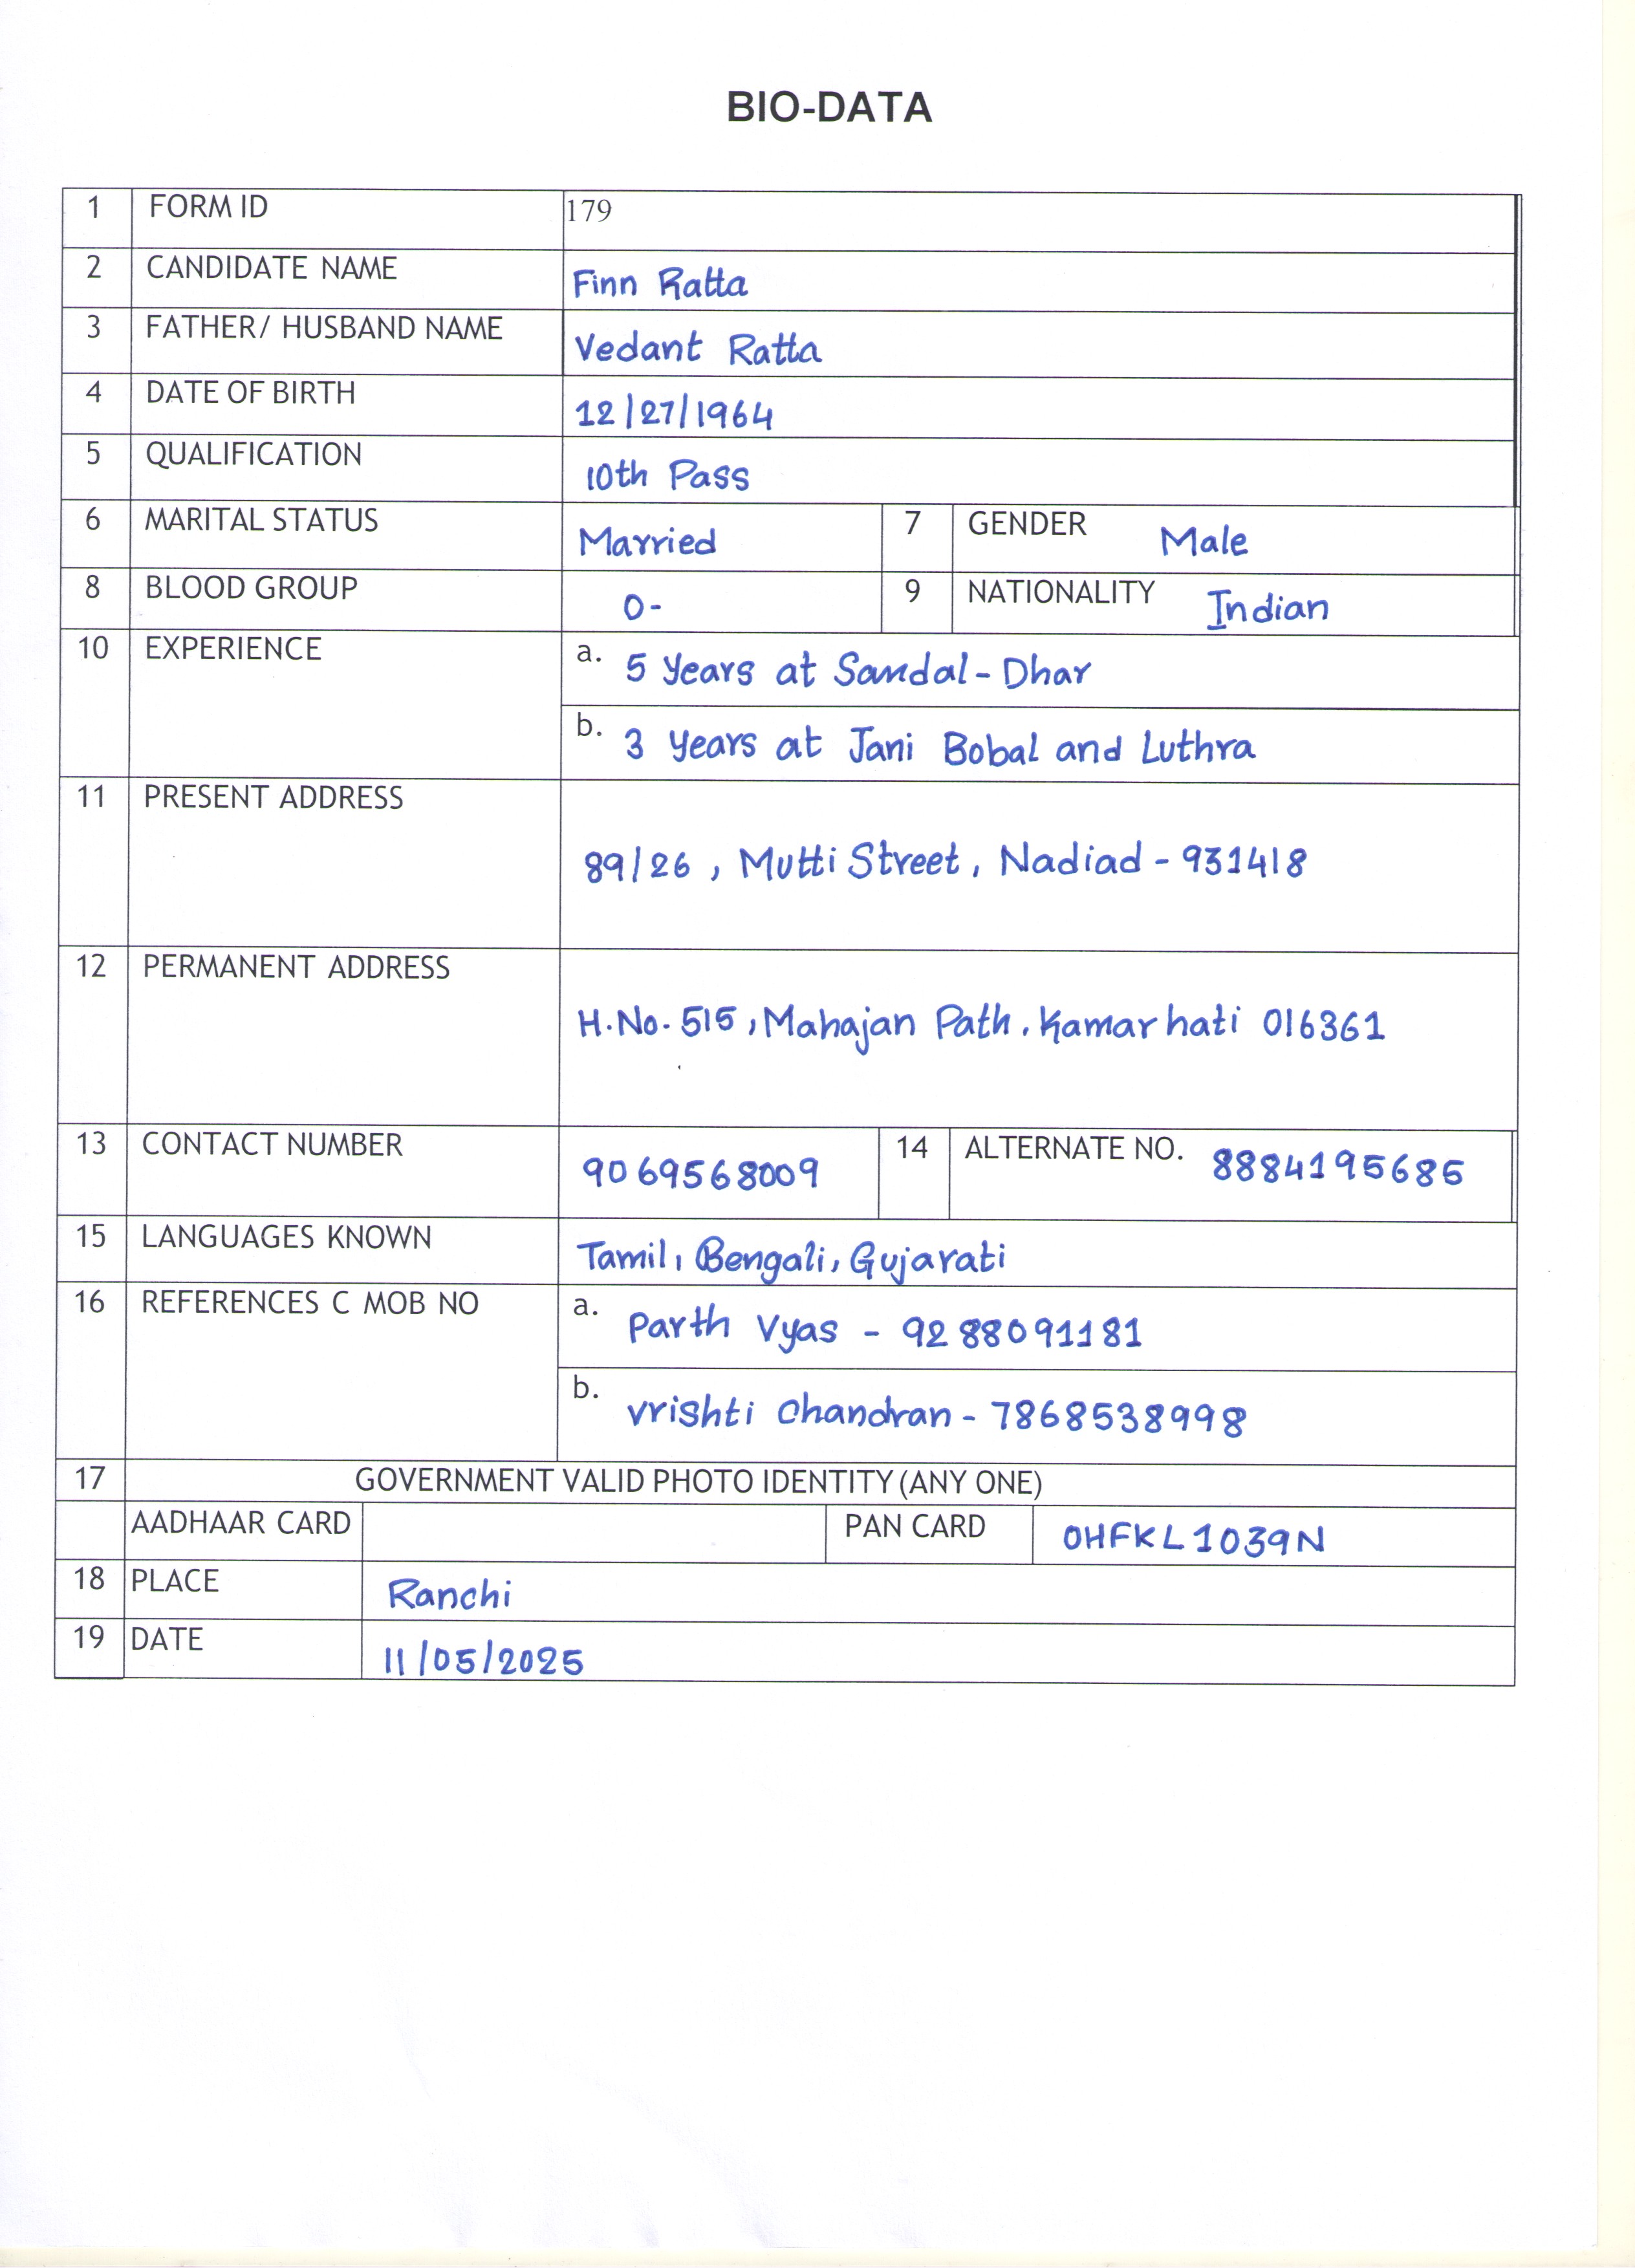 BIO-DATA
1 FORM ID 179
2 CANDIDATE NAME Finn Ratta
3 FATHER/ HUSBAND NAME Vedant Ratta
4 DATE OF BIRTH 12/27/1964
5 QUALIFICATION 10th Pass
6 MARITAL STATUS Married 7 GENDER Male
8 BLOOD GROUP O- 9 NATIONALITY Indian
10 EXPERIENCE a. 5 Years at Sandal-Dhar
b. 3 Years at Jani Bobal and Luthra
11 PRESENT ADDRESS
89/26, Mutti Street, Nadiad - 931418
12 PERMANENT ADDRESS
H.No. 515, Mahajan Path, Kamarhati 016361
13 CONTACT NUMBER 9069568009 14 ALTERNATE NO. 8884195685
15 LANGUAGES KNOWN Tamil, Bengali, Gujarati
16 REFERENCES C MOB NO a. Parth Vyas - 9288091181
b. Vrishti Chandran - 7868538998
17 GOVERNMENT VALID PHOTO IDENTITY (ANY ONE)
AADHAAR CARD PAN CARD OHFKL1039N
18 PLACE Ranchi
19 DATE 11/05/2025